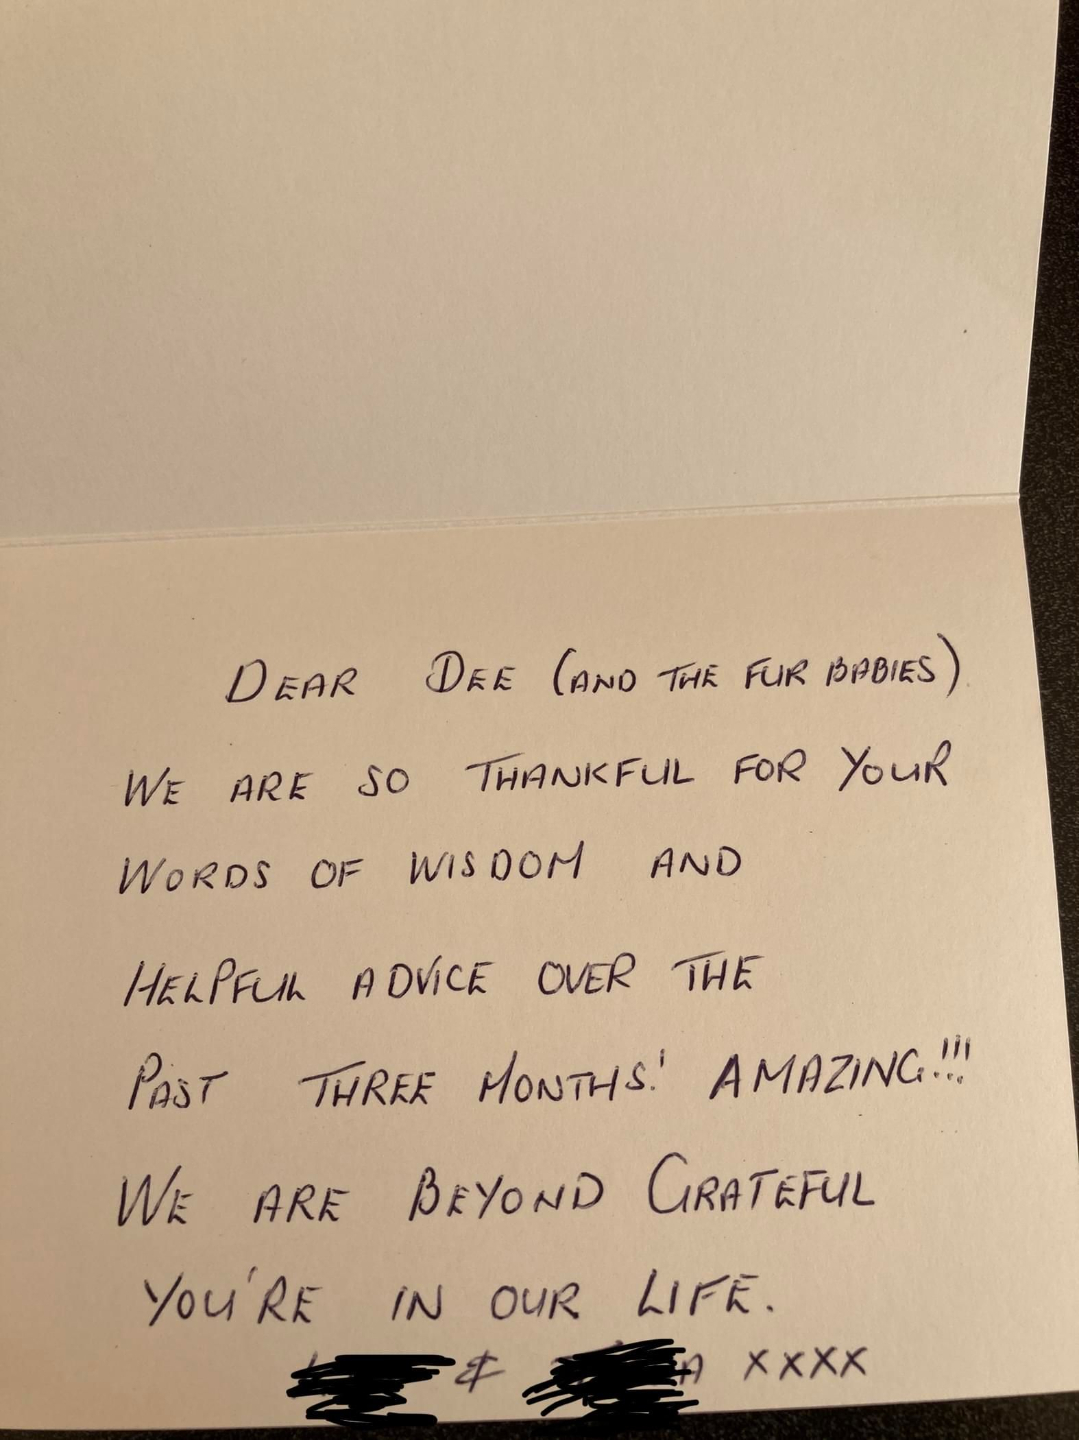 DEAR DEE (AND THE FUR BABIES)
WE ARE SO THANKFUL FOR YOUR
WORDS OF WISDOM AND
HELPFUL ADVICE OVER THE
PAST THREE MONTHS! AMAZING!!!
WE ARE BEYOND GRATEFUL
YOU'RE IN OUR LIFE.
& XXXX